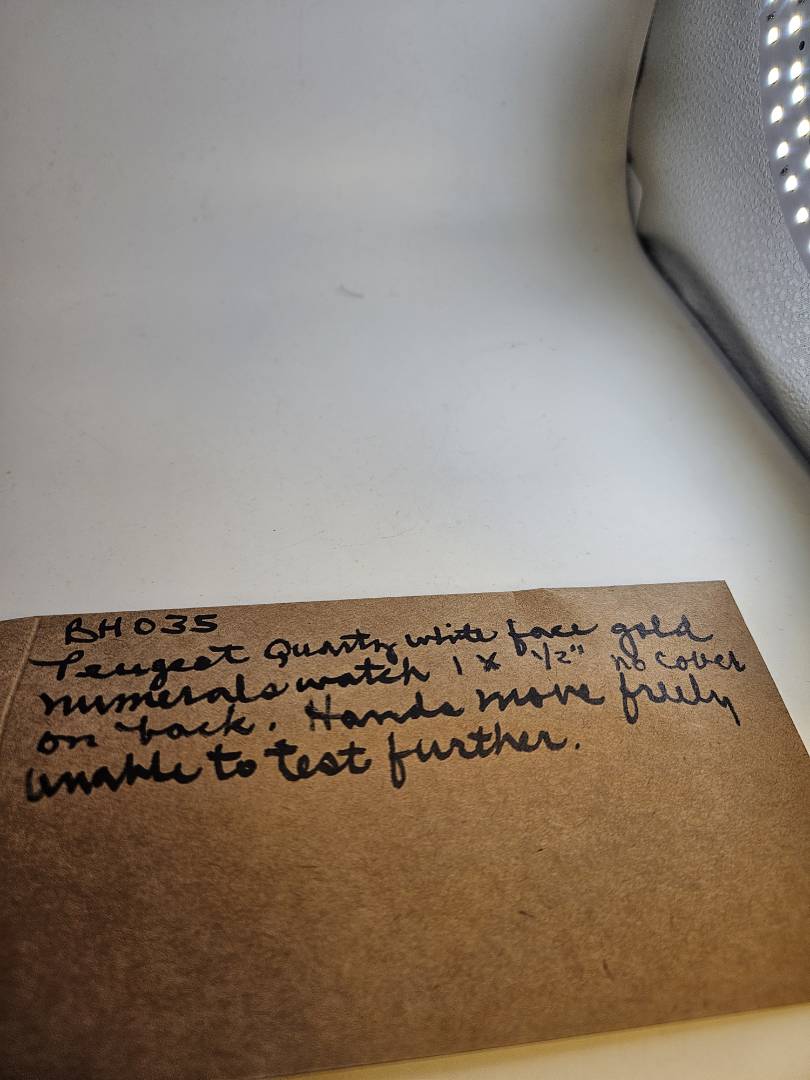 BH035
Peugeot Quartz white face gold
numerals watch 1 x 1/2" no cover
on back. Hands move freely
unable to test further.